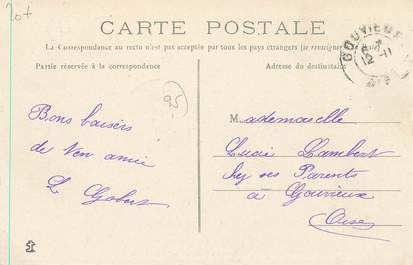 20+
CARTE POSTALE
La Correspondance au recto n'est pas acceptée par tous les pays étrangers (se renseigner
Partie réservée à la correspondance
Adresse du destinataire
GOUVIEUX
12 -11
95
Bons baisers
de ten amie
L Gobert
Mademoiselle
Lucie Lambert
chez ses Parents
à Gouvieux
Oise